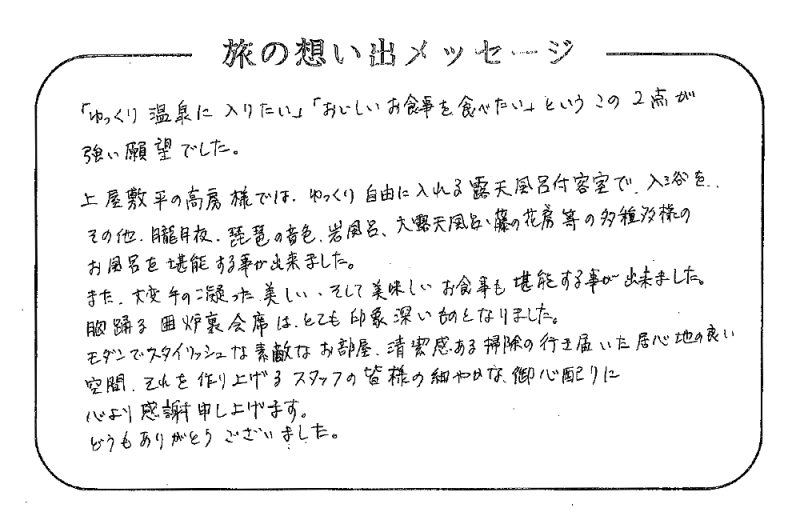 旅の想い出メッセージ
「ゆっくり温泉に入りたい」「おいしいお食事を食べたい」というこの2点が
強い願望でした。
上屋敷平の高房様では、ゆっくり自由に入れる露天風呂付客室で、入浴を、
その他、朧月夜、琵琶の音色、岩風呂、大露天風呂・藤の花房等の多種多様の
お風呂を堪能する事が出来ました。
また、大変手の凝った美しい、そして美味しいお食事も堪能する事が出来ました。
胸踊る囲炉裏会席は、とても印象深いものとなりました。
モダンでスタイリッシュな素敵なお部屋、清潔感ある掃除の行き届いた居心地の良い
空間、それを作り上げるスタッフの皆様の細やかな御心配りに
心より感謝申し上げます。
どうもありがとうございました。